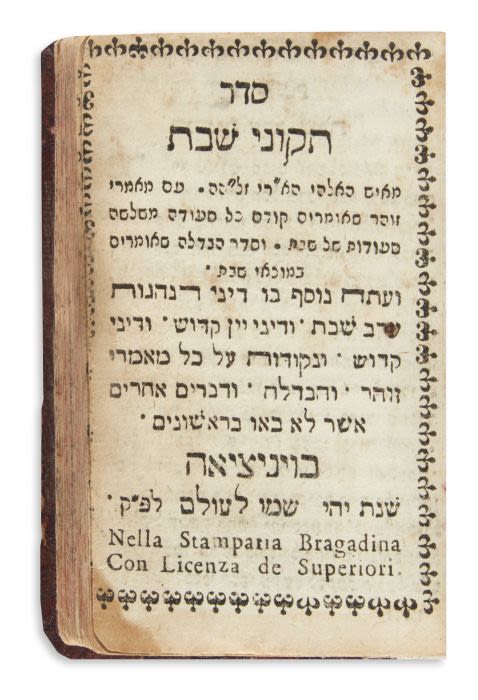 סדר
תקוני שבת
מאיש האלהי הא״רי זל״הה . עם מאמרי
זוהר שאומרים קודם כל סעודה משלשה
סעודות של שבת . וסדר הבדלה שאומרים
במוצאי שבת ·
ועתה נוסף בו דיני הנהגות
ערב שבת · ודיני יין קדוש · ודיני
קדוש · ונקודות על כל מאמרי
זוהר · והבדלה · ודברים אחרים
אשר לא באו בראשונים ·
בויניציאה
שנת יהי שמו לעולם לפ״ק ·
Nella Stamparia Bragadina
Con Licenza de Superiori.